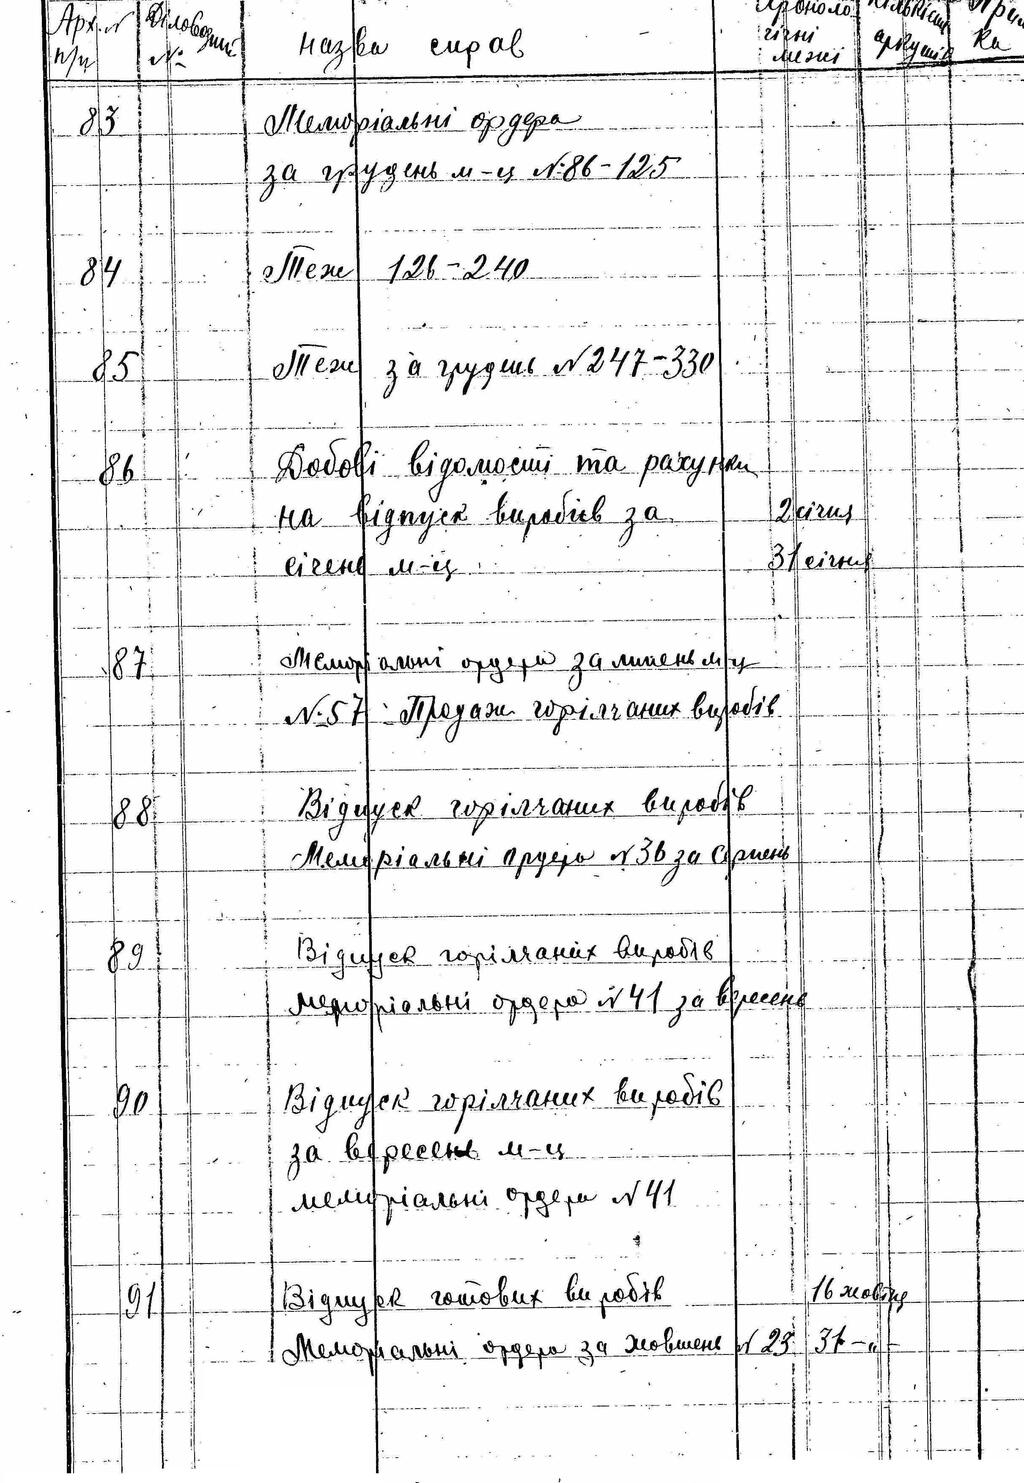 Арх. N Діловодний Назва справ Хроноло Кількість Прим
п/п № гічні аркушів ка
межі
83 Меморіальні ордера
за грудень м-ц №86-125
84 Теж 126-240
85 Теж за грудень N 247-330
86 Добові відомості та рахунки
на відпуск виробів за 2 січня
січень м-ц 31 січня
87 Меморіальні ордера за липень м-ц
№57 Продаж горілчаних виробів
88 Відпуск горілчаних виробів
Меморіальні ордера N 36 за серпень
89 Відпуск горілчаних виробів
меморіальні ордера N 41 за вересень
90 Відпуск горілчаних виробів
за вересень м-ц
меморіальні ордера N 41
91 Відпуск готових виробів 16 жовтня
Меморіальні ордера за жовтень N 23 31 -"-